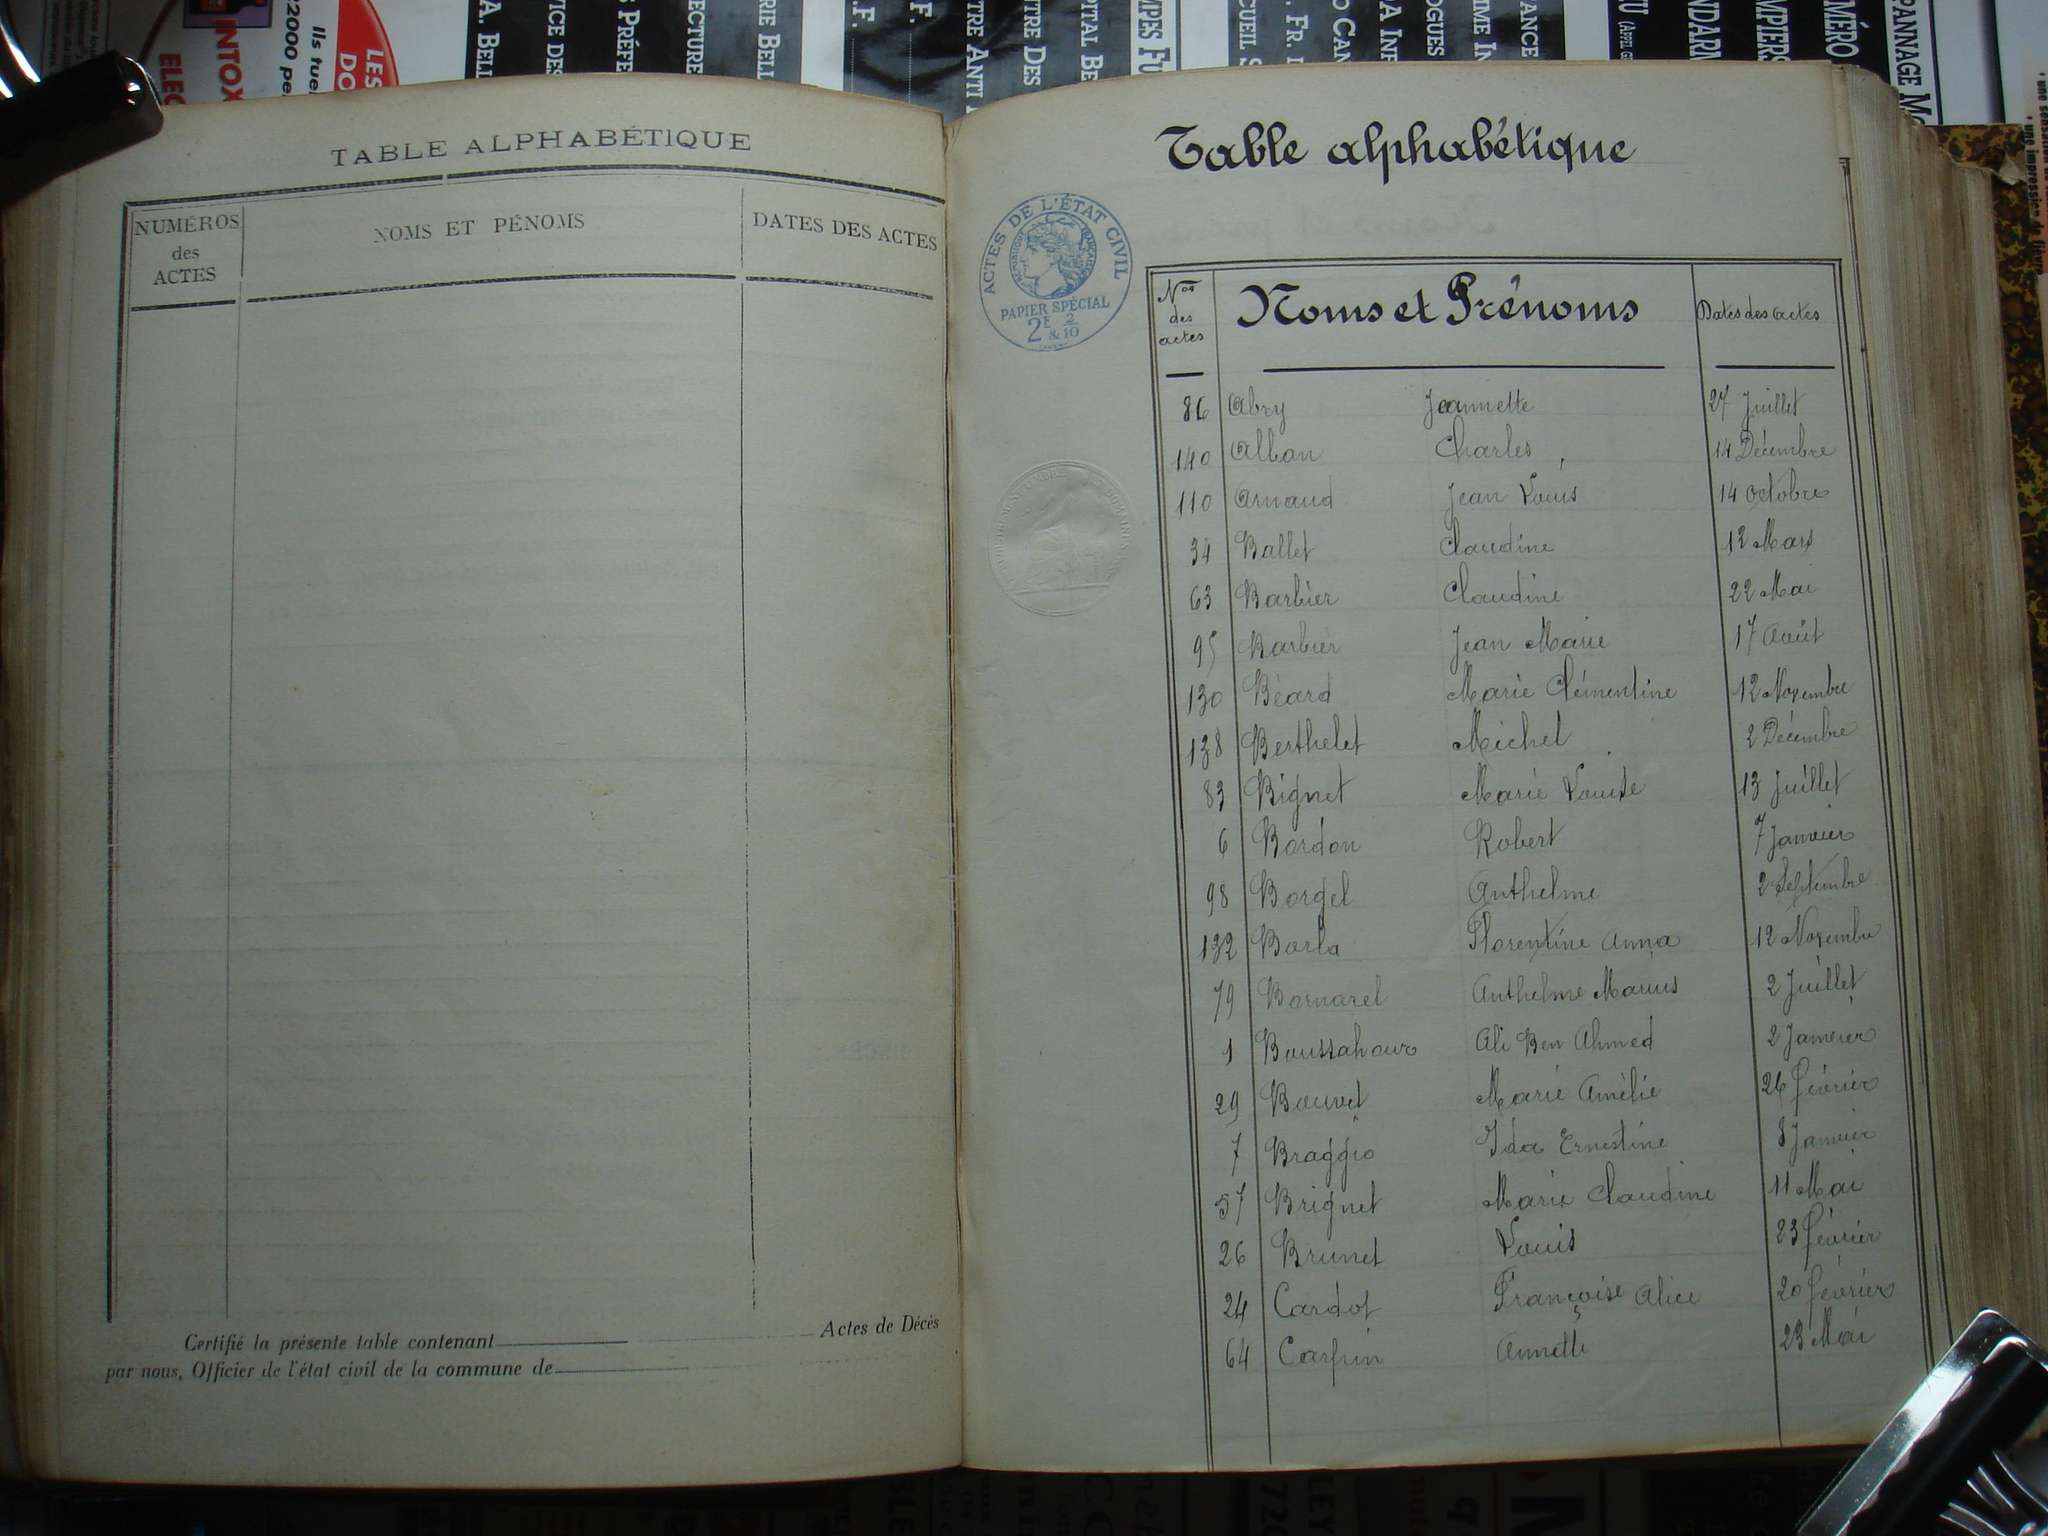 TABLE ALPHABÉTIQUE
NUMÉROS
des
ACTES
NOMS ET PÉNOMS
DATES DES ACTES
Certifié la présente table contenant Actes de Décès
par nous, Officier de l'état civil de la commune de
Table alphabétique
ACTES DE L'ÉTAT CIVIL
RÉPUBLIQUE FRANÇAISE
PAPIER SPÉCIAL
2F 2/10
&
Nos
des
actes
Noms et Prénoms
Dates des actes
86 Abry Jeannette 27 Juillet
140 Alban Charles 14 Décembre
110 Arnaud Jean Louis 14 Octobre
34 Ballet Claudine 12 Mars
63 Barbier Claudine 22 Mai
95 Barbier Jean Marie 17 Août
130 Béard Marie Clémentine 12 Novembre
138 Berthelet Michel 2 Décembre
83 Bignet Marie Louise 13 Juillet
6 Bordon Robert 7 Janvier
98 Borgel Anthelme 2 Septembre
132 Borla Florentine Anna 12 Novembre
79 Bornarel Anthelme Marius 2 Juillet
1 Ali Ben Ahmed 2 Janvier
29 Bouvet Marie Amélie 26 février
7 Braggio Ida Ernestine 8 Janvier
57 Brignet Marie Claudine 11 Mai
26 Brunet Louis 23 février
24 Cardot Françoise Alice 20 février
64 Carpin Annette 23 Mai